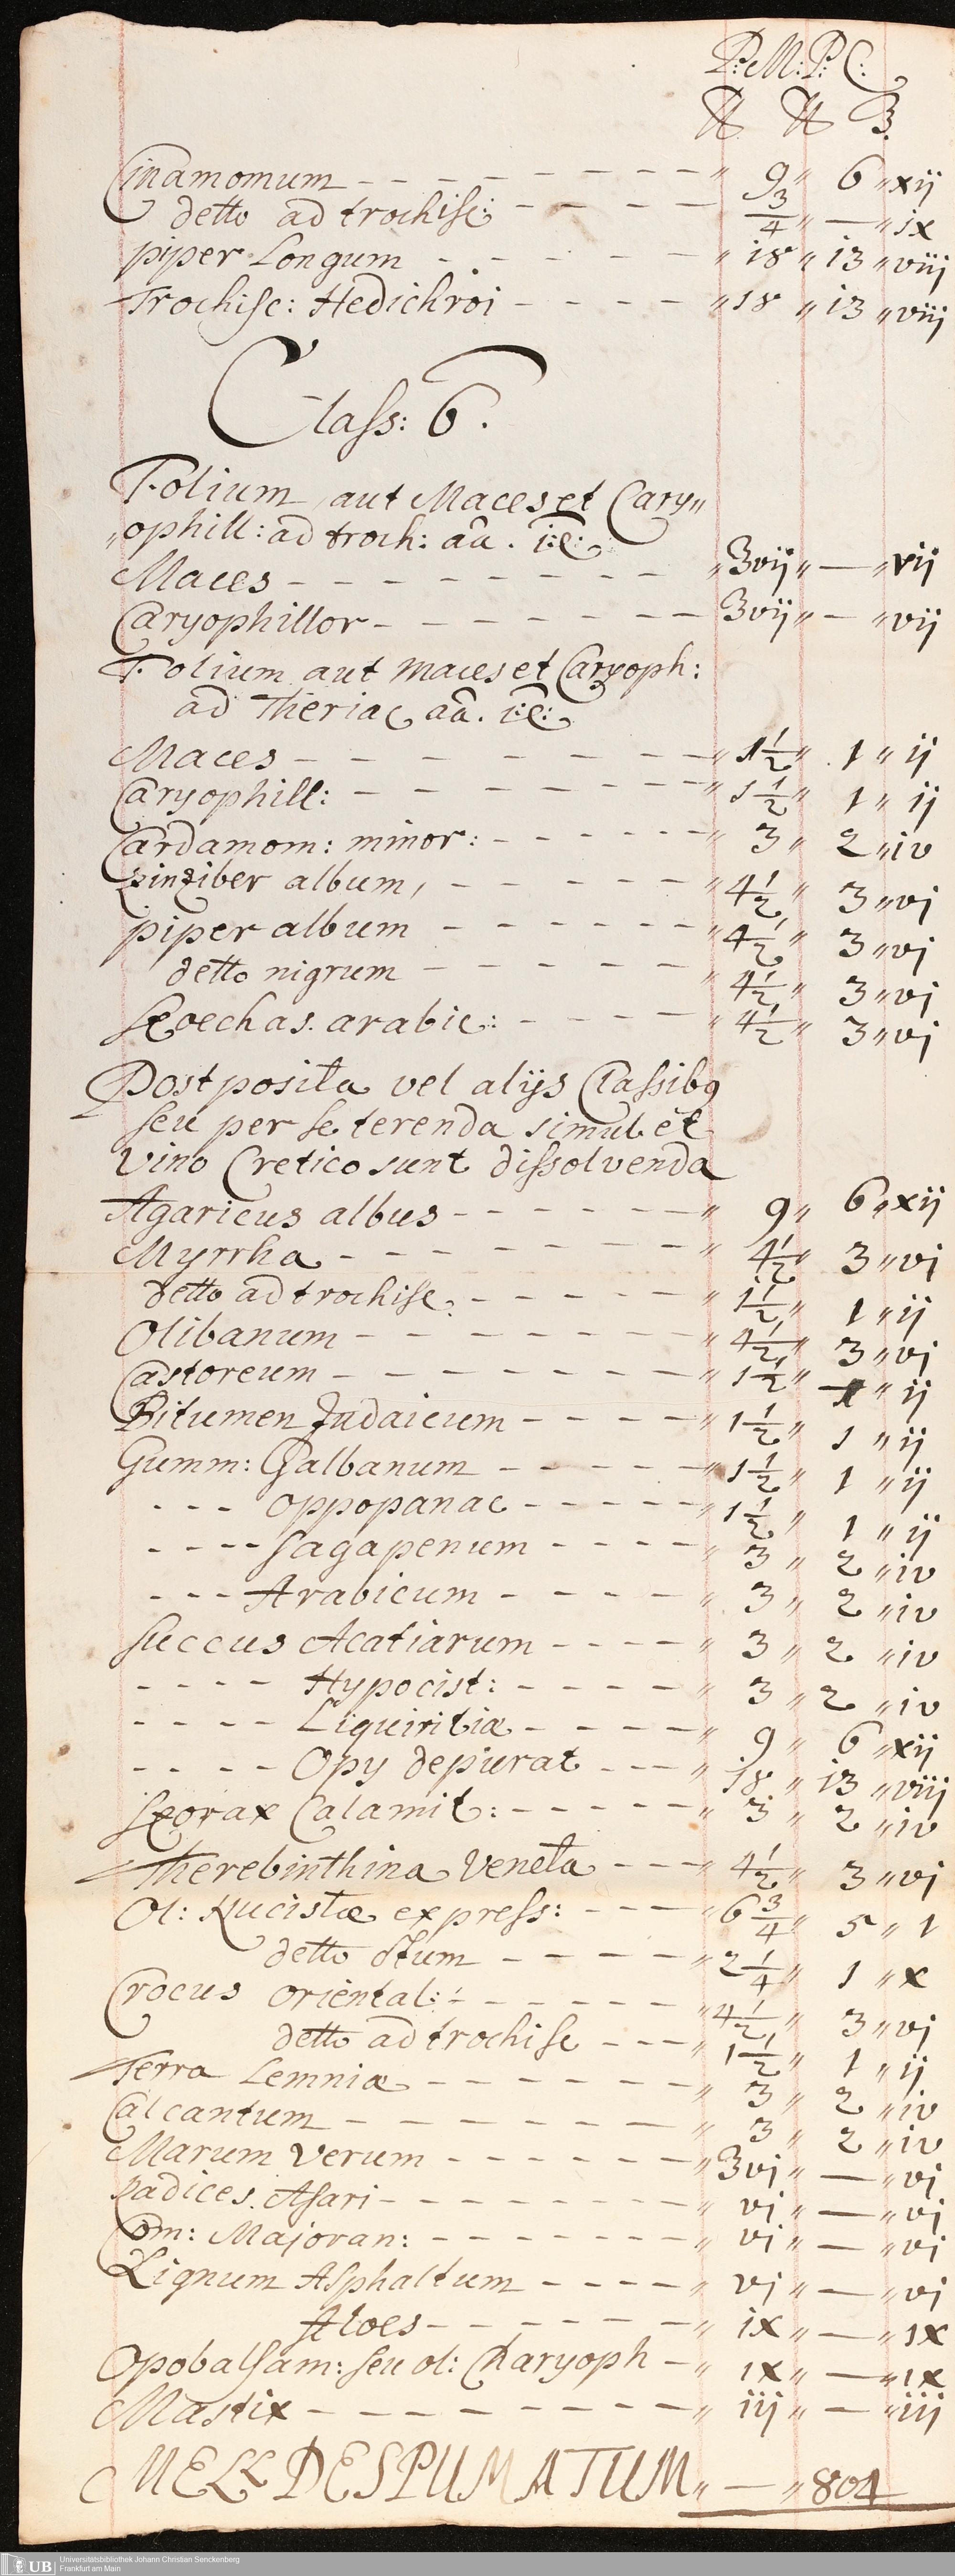 P: M: P: C:
℔ ℔ ℥.
Cinamomum - - - - - - - - „ 9 „ 6 „ xij
detto ad trochisc: - - - - „ 3/4 „ — „ ix
piper Longum - - - - - - „ 18 „ 13 „ viij
Trochisc: Hedichroi - - - - „ 18 „ 13 „ viij
Class: 6.
Folium aut Maces et Cary„
„ophill: ad troch: aa. i:e:
Maces - - - - - - - - - „ ℥vij „ — „ vij
Caryophillor - - - - - - - - ℥vij „ — „ vij
Folium aut maces et Caryoph:
ad Theriac aa. i:e:
Maces - - - - - - - - - „ 1 1/2 „ 1 „ ij
Caryophill: - - - - - - - - „ 1 1/2 „ 1 „ ij
Cardamom: minor: - - - - - - „ 3 „ 2 „ iv
Zinziber album, - - - - - - „ 4 1/2 „ 3 „ vj
piper album - - - - - - „ 4 1/2 „ 3 „ vj
detto nigrum - - - - - - „ 4 1/2 „ 3 „ vj
Stoechas. arabic: - - - - - „ 4 1/2 „ 3 „ vj
Postposita vel alijs Classibq
seu per se terenda simul et
vino Cretico sunt dissolvenda
Agaricus albus - - - - - - - „ 9 „ 6 „ xij
Myrrha - - - - - - - - „ 4 1/2 „ 3 „ vj
detto ad trochisc: - - - - - - „ 1 1/2 „ 1 „ ij
Olibanum - - - - - - - - „ 4 1/2 „ 3 „ vj
Castoreum - - - - - - - - „ 1 1/2 „ 1 „ ij
Bitumen Judaicum - - - - - „ 1 1/2 „ 1 „ ij
Gumm: Galbanum - - - - - - „ 1 1/2 „ 1 „ ij
- - - Oppopanac - - - - - „ 1 1/2 „ 1 „ ij
- - - - Sagapenum - - - - „ 3 „ 2 „ iv
- - - Arabicum - - - - - „ 3 „ 2 „ iv
Succus Acatiarum - - - - „ 3 „ 2 „ iv
- - - - Hypocist: - - - - - „ 3 „ 2 „ iv
- - - - Liquiritiæ - - - - - „ 9 „ 6 „ xij
- - - - Opy depurat - - - „ 18 „ 13 „ viij
Storax Calamit: - - - - - - „ 3 „ 2 „ iv
Therebinthina Veneta - - - „ 4 1/2 „ 3 „ vj
Ol: Nucistæ express: - - - - „ 6 3/4 „ 5 „ 1
detto - - - - - „ 2 1/4 „ 1 „ x
Crocus oriental: - - - - - - „ 4 1/2 „ 3 „ vj
detto ad trochisc - - - „ 1 1/2 „ 1 „ ij
Terra Lemnia - - - - - - - „ 3 „ 2 „ iv
Calcantum - - - - - - - - „ 3 „ 2 „ iv
Marum Verum - - - - - - „ ℥vj „ — „ vj
Radices. Asari - - - - - - - - „ vj „ — „ vj
Com: Majoran: - - - - - - - „ vj „ — „ vj
Lignum Asphaltum - - - - „ vj „ — „ vj
Aloes - - - - - - - „ ix „ — „ ix
Opobalsam: seu ol: Charyoph - „ ix „ — „ ix
Mastix - - - - - - - - - „ iij „ — „ iij
MELL DESPUMATUM „ — „ 804
UB Universitätsbibliothek Johann Christian Senckenberg
Frankfurt am Main